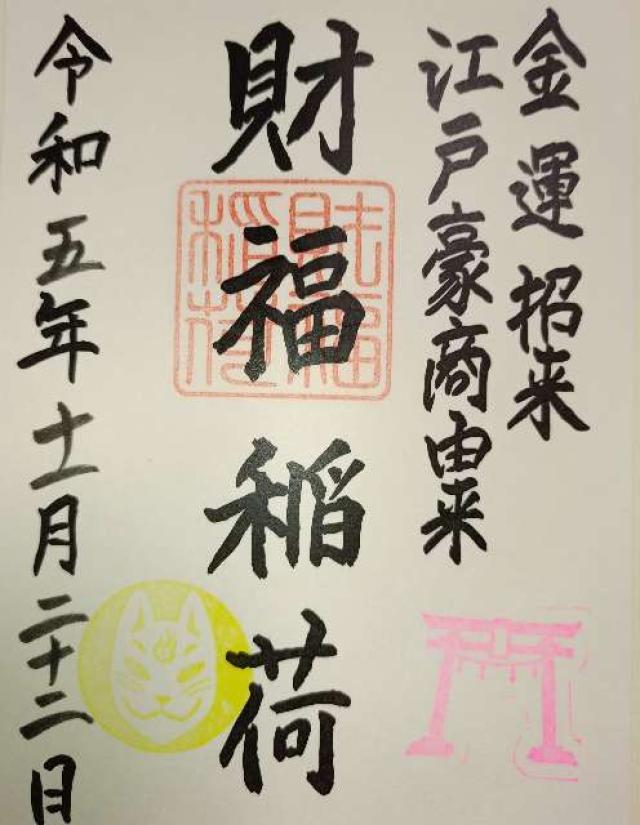 金運招来
江戸豪商由来
財福稲荷
財福稲荷
令和五年十一月二十二日